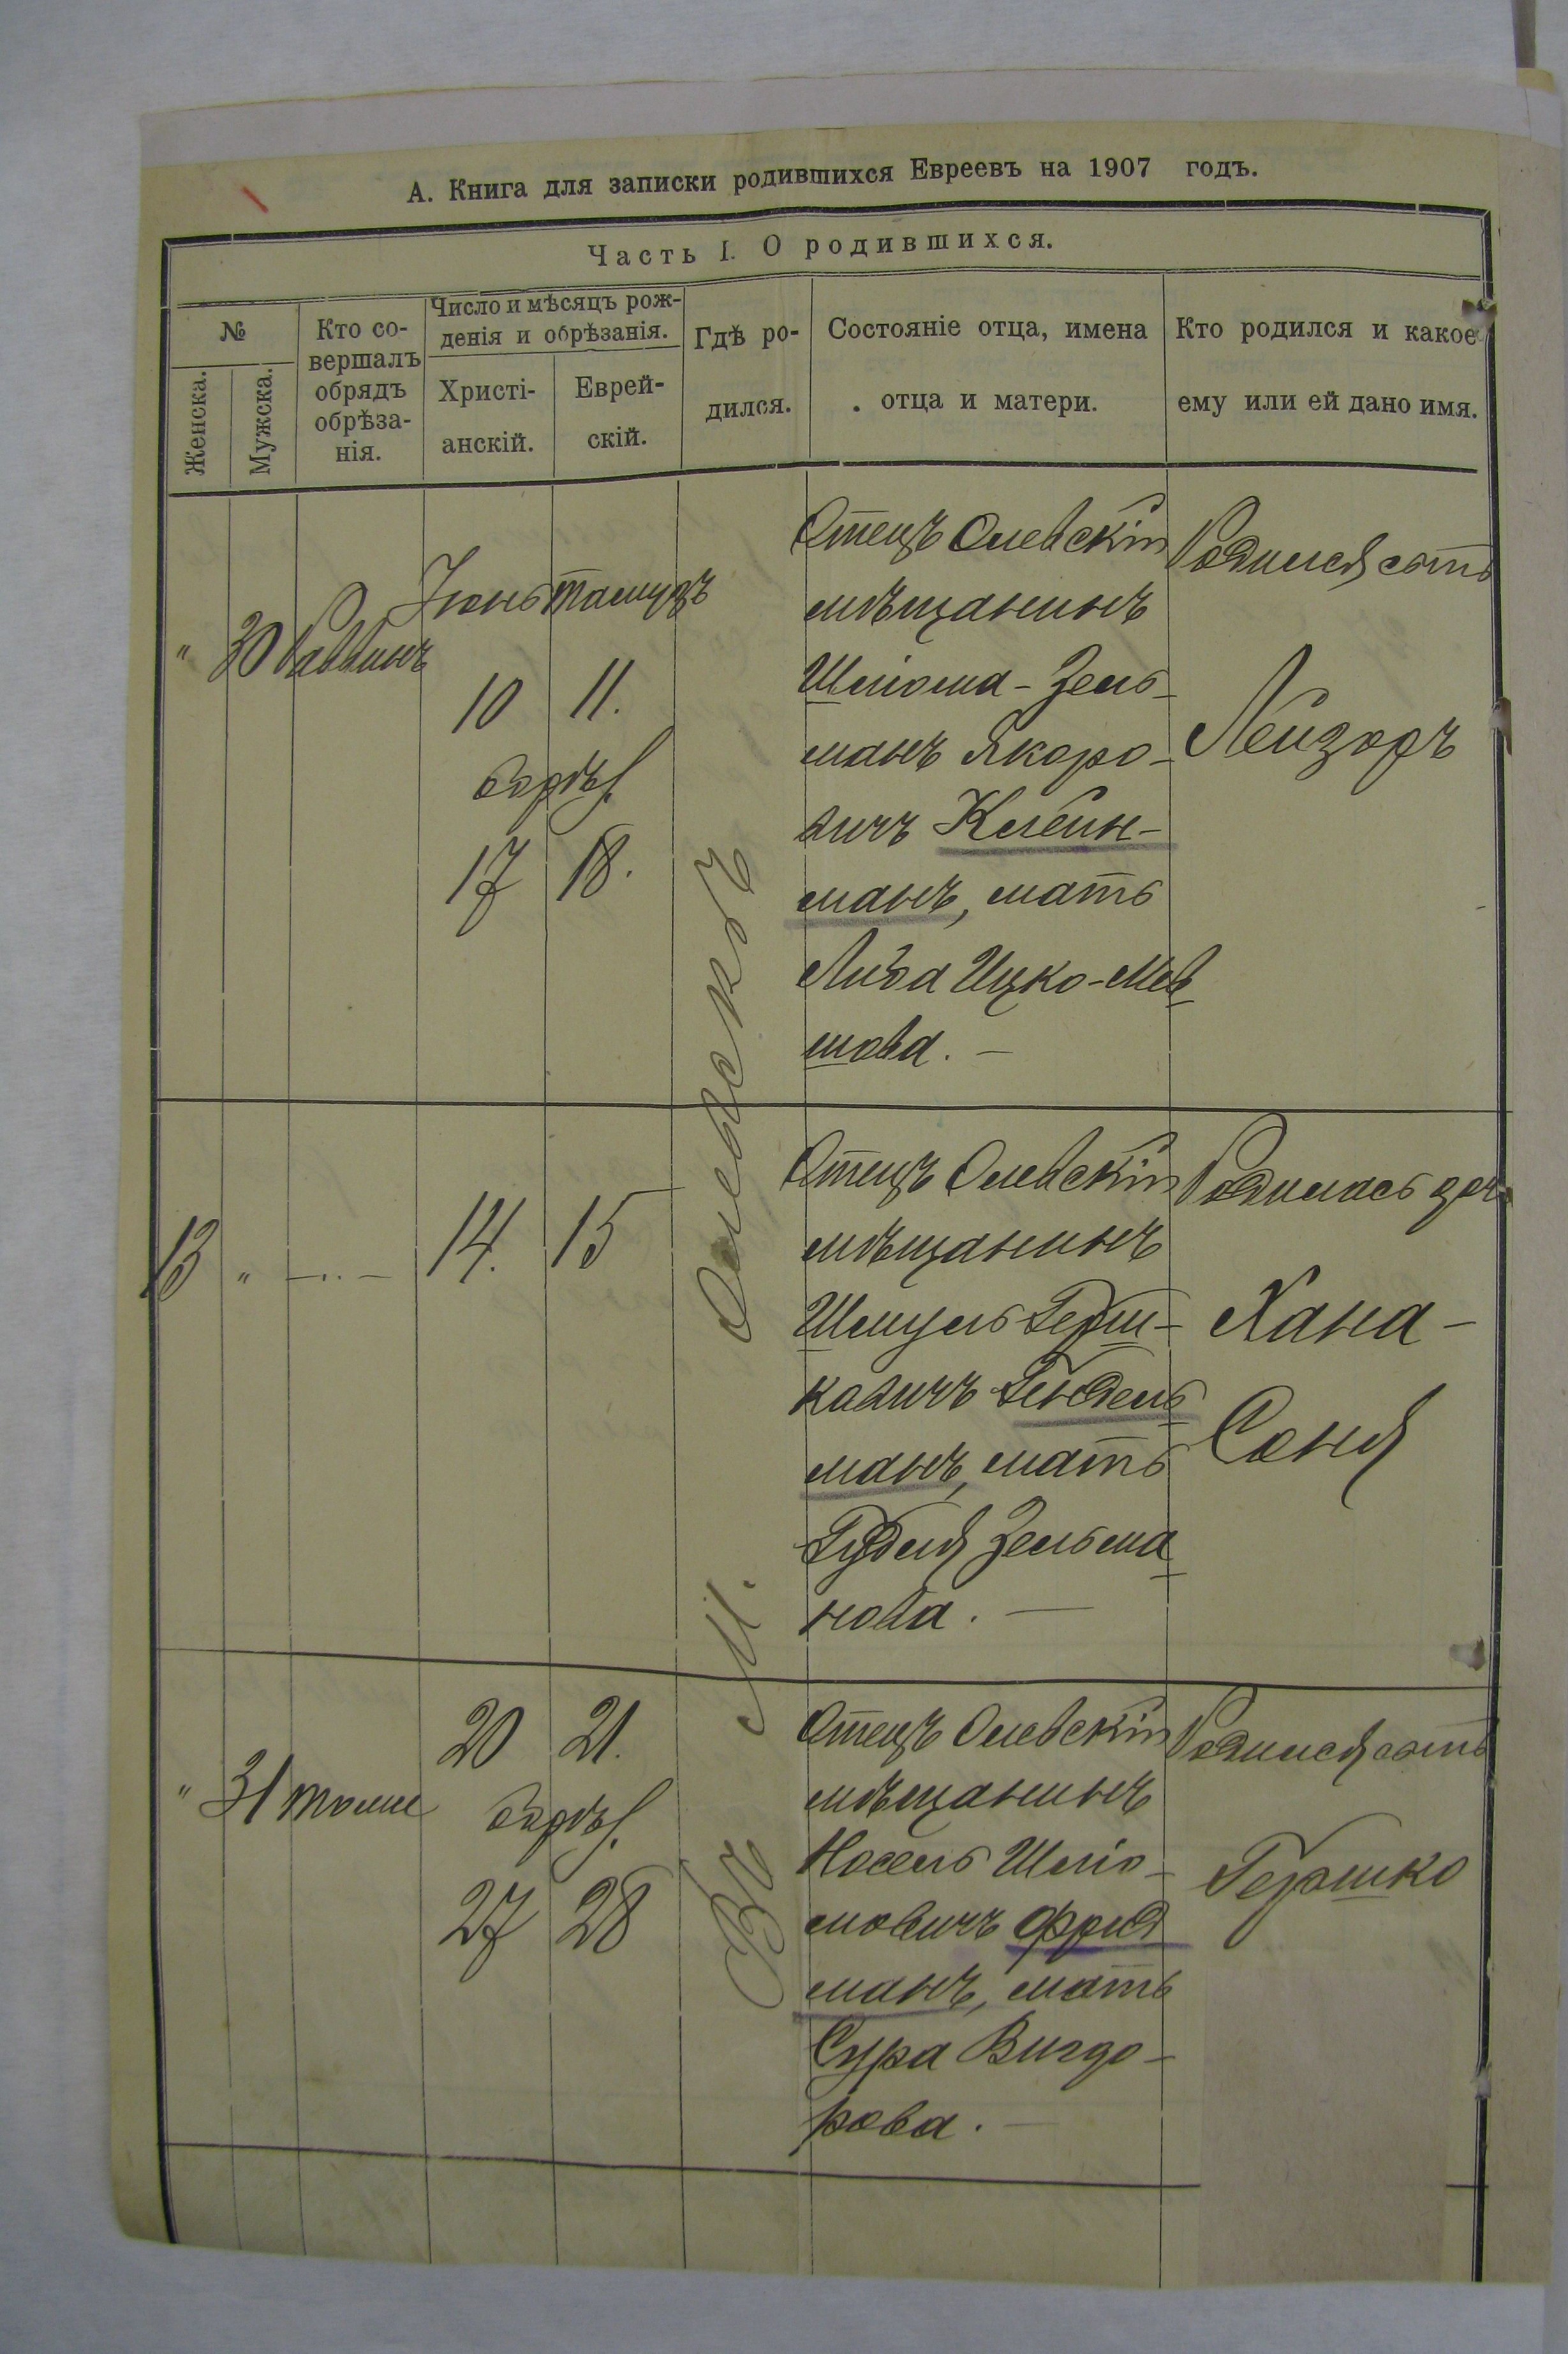 А. Книга для записки родившихся Евреевъ на 1907 годъ.
Часть I. О родившихся.
№
Женска.
Мужска.
Кто со-
вершалъ
обрядъ
обрѣза-
нія.
Число и мѣсяцъ рож-
денія и обрѣзанія.
Христі-
анскій.
Еврей-
скій.
Гдѣ ро-
дился.
Состояніе отца, имена
отца и матери.
Кто родился и какое
ему или ей дано имя.
" 30 Раввинъ
Іюнь Тамузъ
10 11.
17 18.
Въ М. Олевскѣ
Отецъ Олевскій
мѣщанинъ
Шліома-Зель-
манъ
вичъ Клейн-
манъ, мать
Либа Ицко-Мов
шова. —
Родился сынъ
Лейзоръ
13 " —..—
14. 15
Отецъ Олевскій
мѣщанинъ
Шмуль Герш-
ковичъ Гендель
манъ, мать
Зельма
нова. —
Родилась доч
Хана-
Соня
" 31 тоже
20 21.
27 28
Отецъ Олевскій
мѣщанинъ
Носель Шліо-
мовичъ Фрид
манъ, мать
Сура Вигдо-
рова. —
Родился сынъ
Гершко